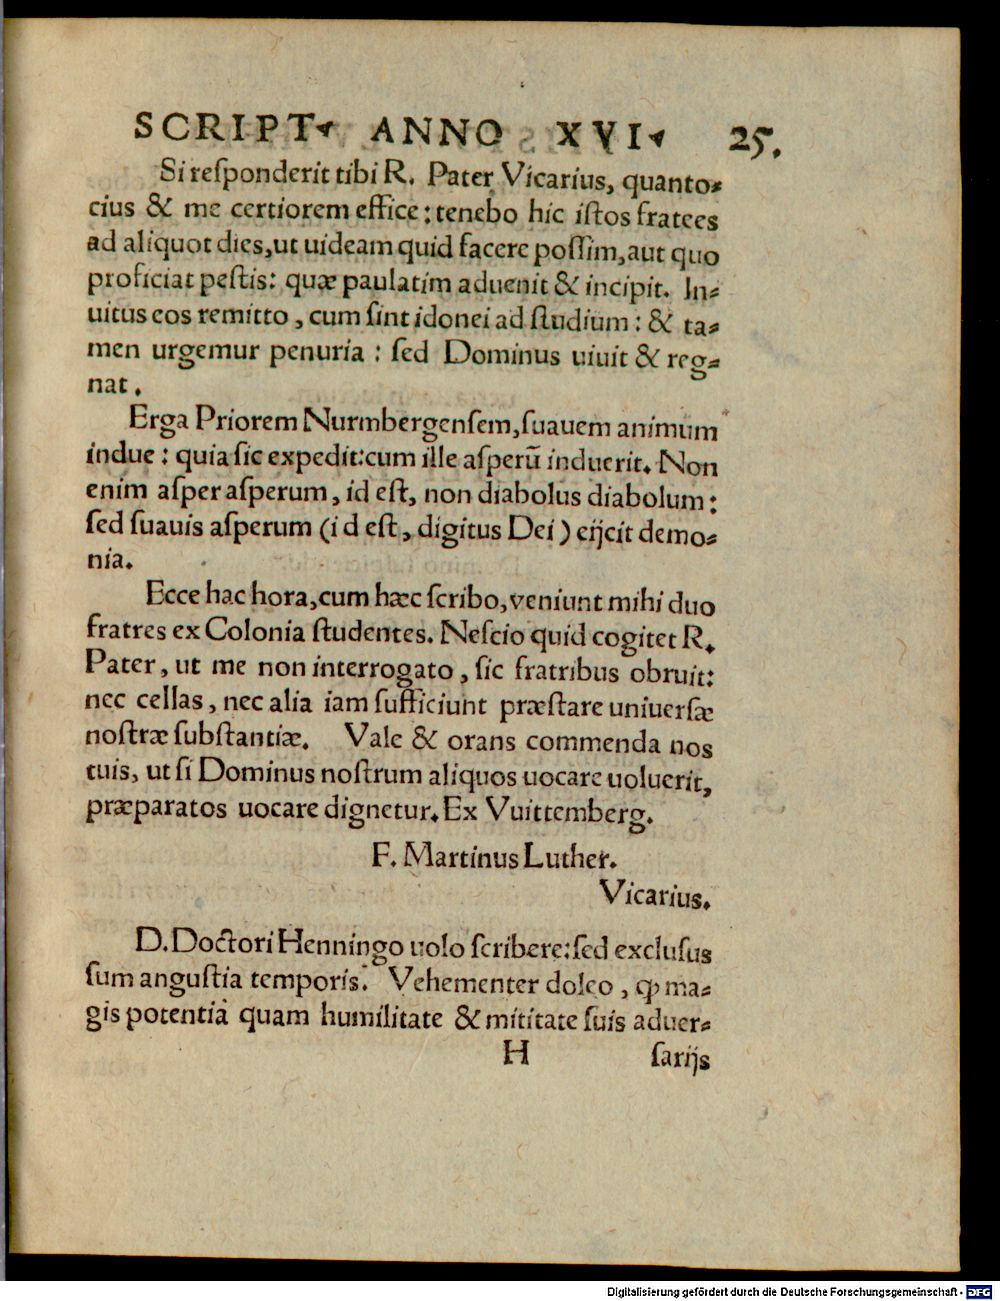 SCRIPT. ANNO XVI. 25.
Si reſponderit tibi R. Pater Vicarius, quanto⸗
cius & me certiorem effice: tenebo hic iſtos fratees
ad aliquot dies, ut uideam quid facere poſſim, aut quo
proficiat peſtis: quæ paulatim aduenit & incipit. In⸗
uitus eos remitto, cum ſint idonei ad ſtudium: & ta⸗
men urgemur penuria: ſed Dominus uiuit & reg⸗
nat.
Erga Priorem Nurmbergenſem, ſuauem animum
indue: quia ſic expedit: cum ille aſperũ induerit. Non
enim aſper aſperum, id eſt, non diabolus diabolum:
ſed ſuauis aſperum (i d eſt, digitus Dei) eijcit demo⸗
nia.
Ecce hac hora, cum hæc ſcribo, veniunt mihi duo
fratres ex Colonia ſtudentes. Neſcio quid cogitet R.
Pater, ut me non interrogato, ſic fratribus obruit:
nec cellas, nec alia iam ſufficiunt præſtare uniuerſæ
noſtræ ſubſtantiæ. Vale & orans commenda nos
tuis, ut ſi Dominus noſtrum aliquos uocare uoluerit,
præparatos uocare dignetur. Ex Vuittemberg.
F. Martinus Luther.
Vicarius.
D. Doctori Henningo uolo ſcribere: ſed excluſus
ſum anguſtia temporis. Vehementer doleo, ꝙ ma⸗
gis potentia quam humilitate & mititate ſuis aduer⸗
H ſarijs
Digitalisierung gefördert durch die Deutsche Forschungsgemeinschaft - DFG